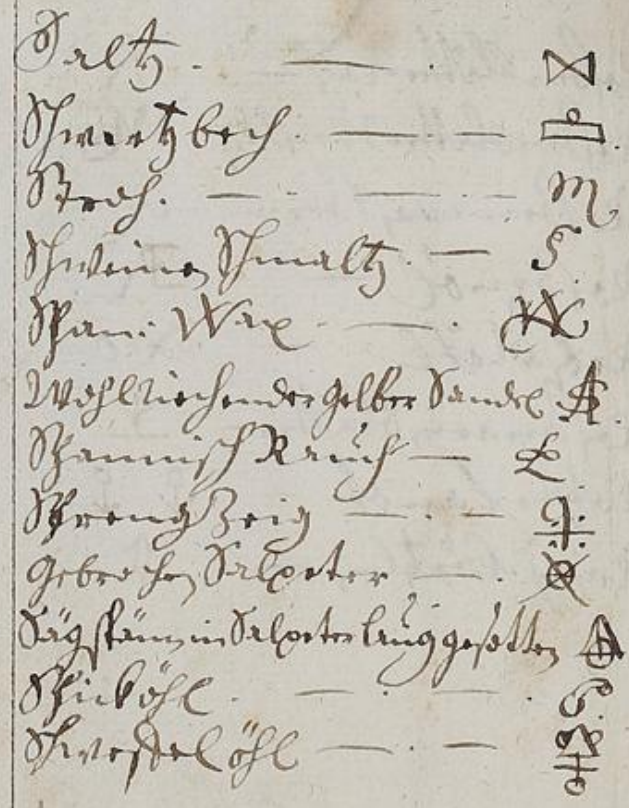 Saltz.
Schwartzbech.
Stroh.
Schweinen Schmaltz.
Span: Wax
Wohl Riechender gelber Sandel
Spannisch Rauch
Spreng Zeig
Gebrochen Salpeter
Sägspänn in Salpeter laug gesotten
Spicköhl.
Schweffel öhl